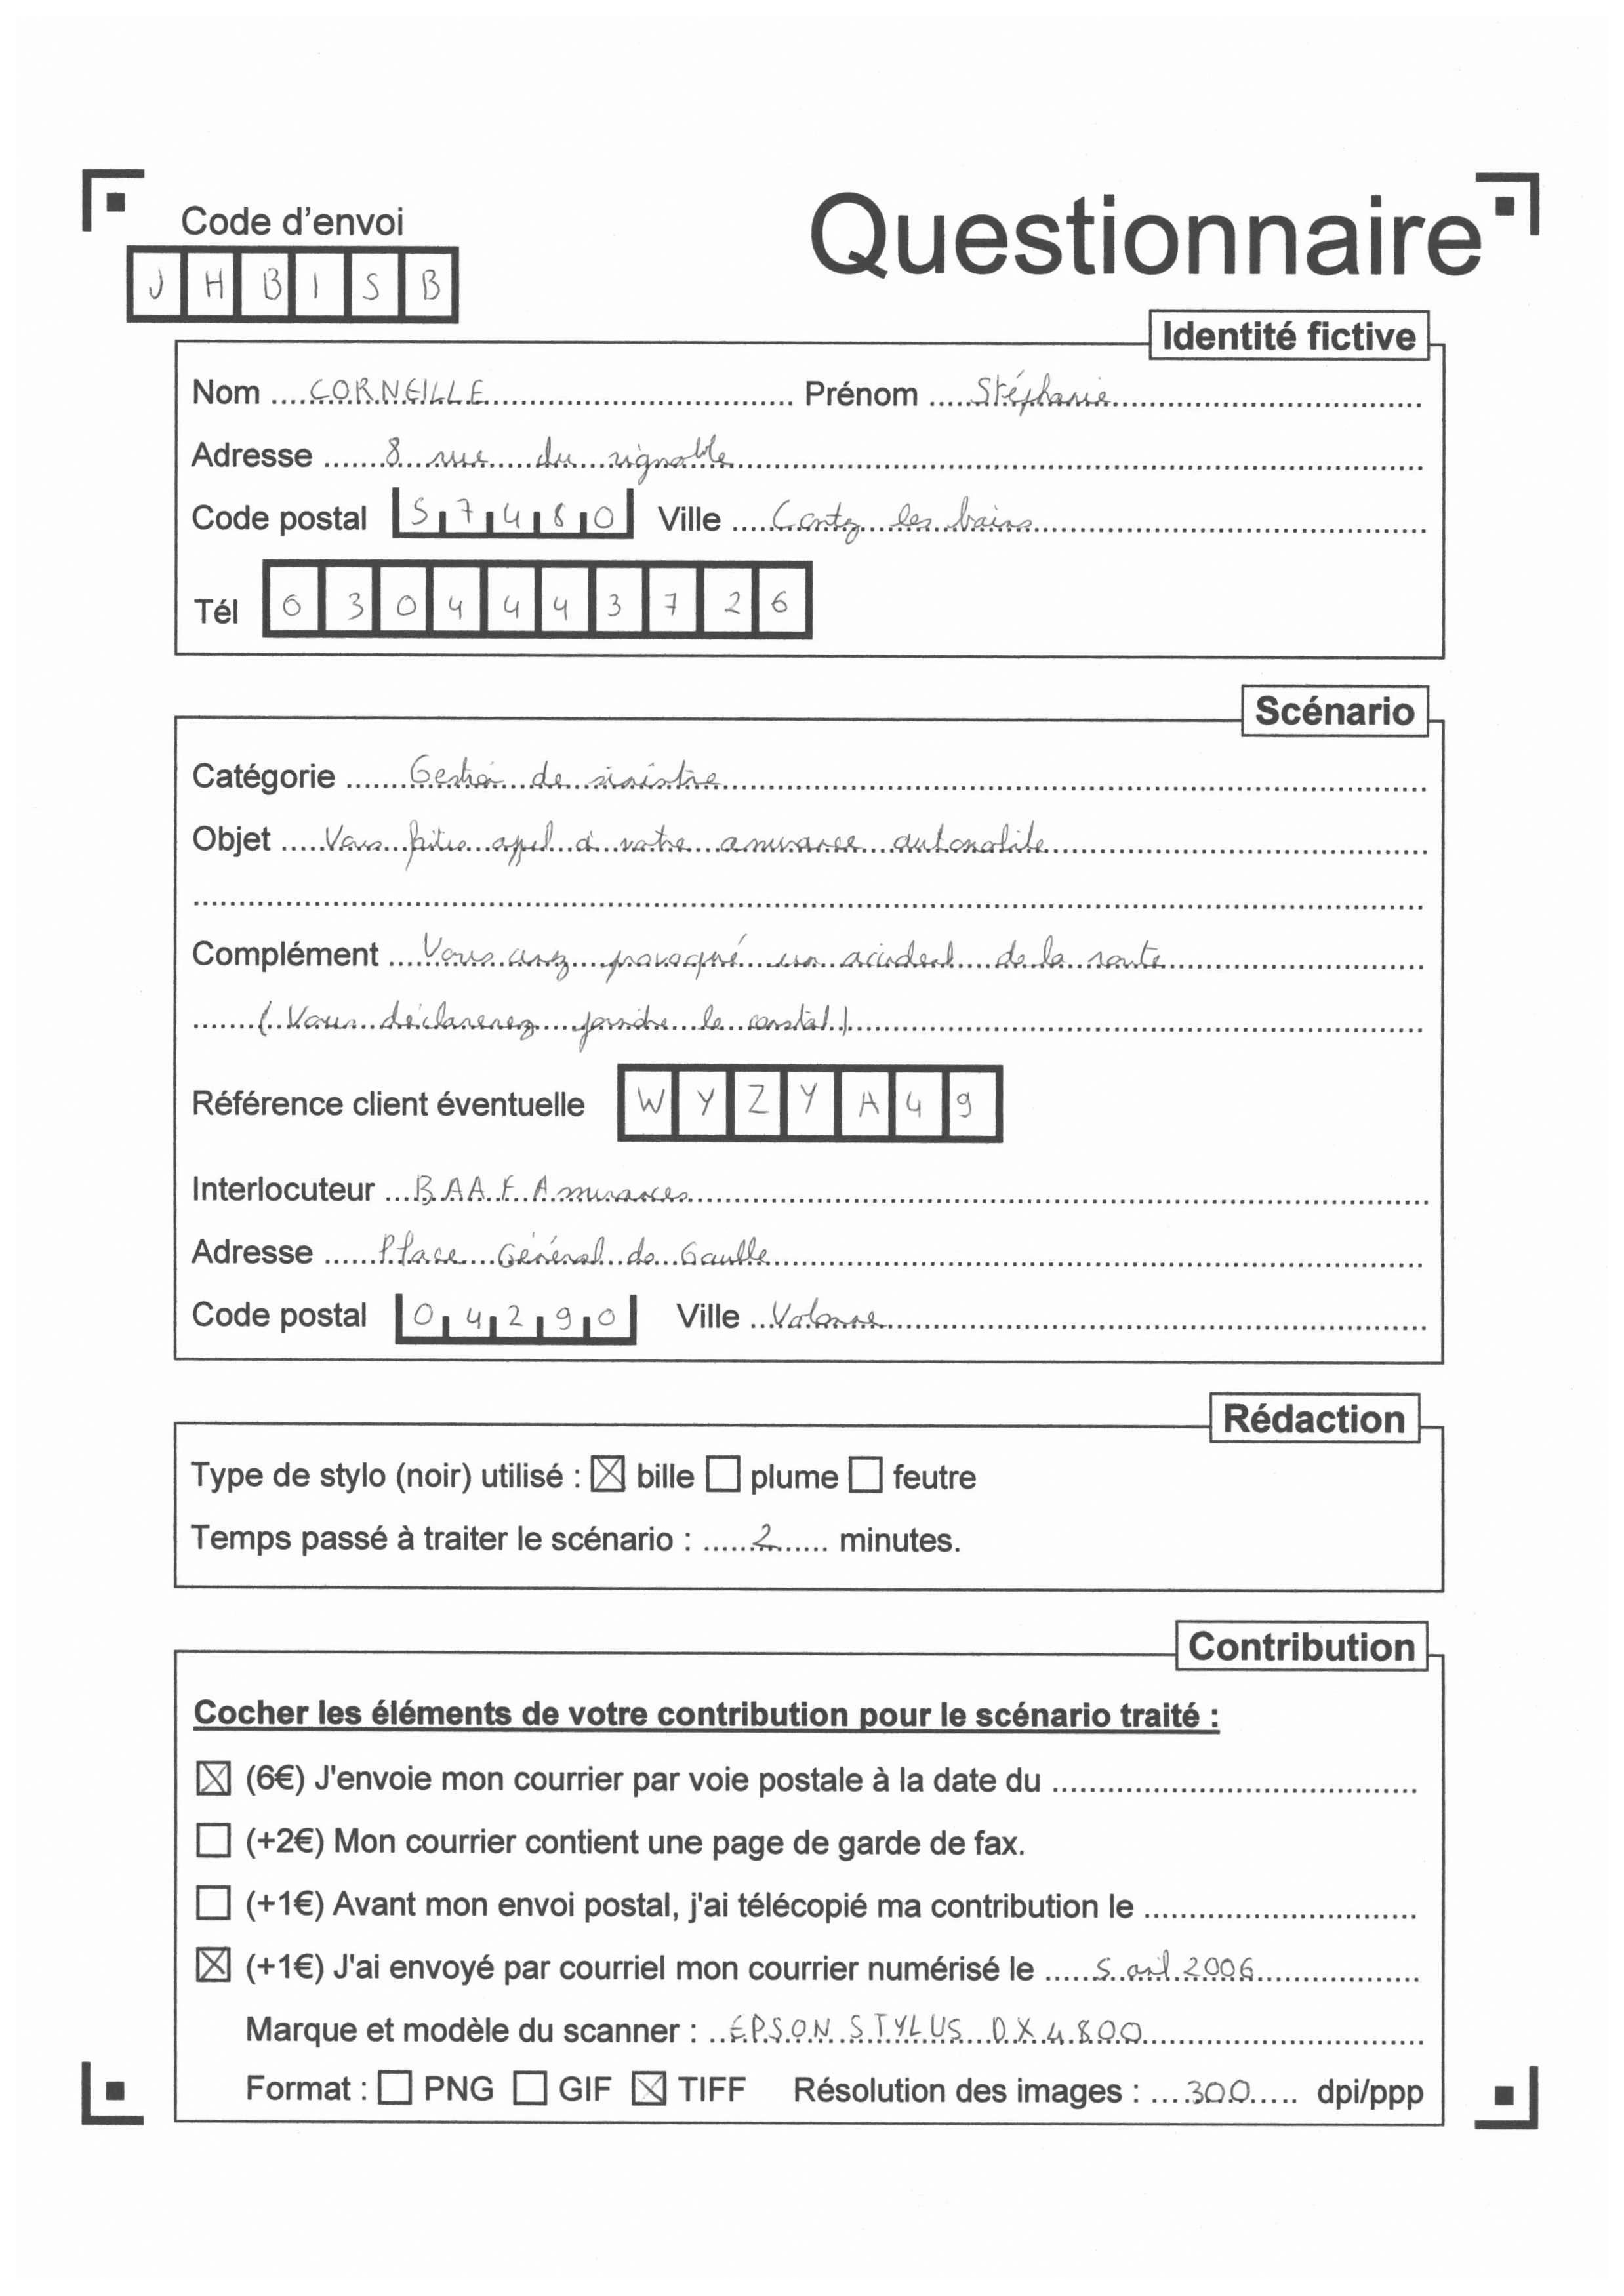 Code d'envoi
Questionnaire
J H B I S B
Identité fictive
Nom CORNEILLE Prénom Stéphanie
Adresse 8 rue du vignoble
Code postal 57480 Ville Contz les bains
Tél 6304443726
Scénario
Catégorie Gestion de sinistre
Objet Vous faites appel à votre assurance automobile
Complément Vous avez provoqué un accident de la route
(Vous déclarerez joindre le constat)
Référence client éventuelle W Y Z Y A 4 9
Interlocuteur BAAF Assurances
Adresse Place Général de Gaulle
Code postal 04290 Ville Volonne
Rédaction
Type de stylo (noir) utilisé : ☒ bille ☐ plume ☐ feutre
Temps passé à traiter le scénario : 2 minutes.
Contribution
Cocher les éléments de votre contribution pour le scénario traité :
☒ (6€) J'envoie mon courrier par voie postale à la date du
☐ (+2€) Mon courrier contient une page de garde de fax.
☐ (+1€) Avant mon envoi postal, j'ai télécopié ma contribution le
☒ (+1€) J'ai envoyé par courriel mon courrier numérisé le 5 2006
Marque et modèle du scanner : EPSON STYLUS DX4800
Format : ☐ PNG ☐ GIF ☒ TIFF Résolution des images : 300 dpi/ppp